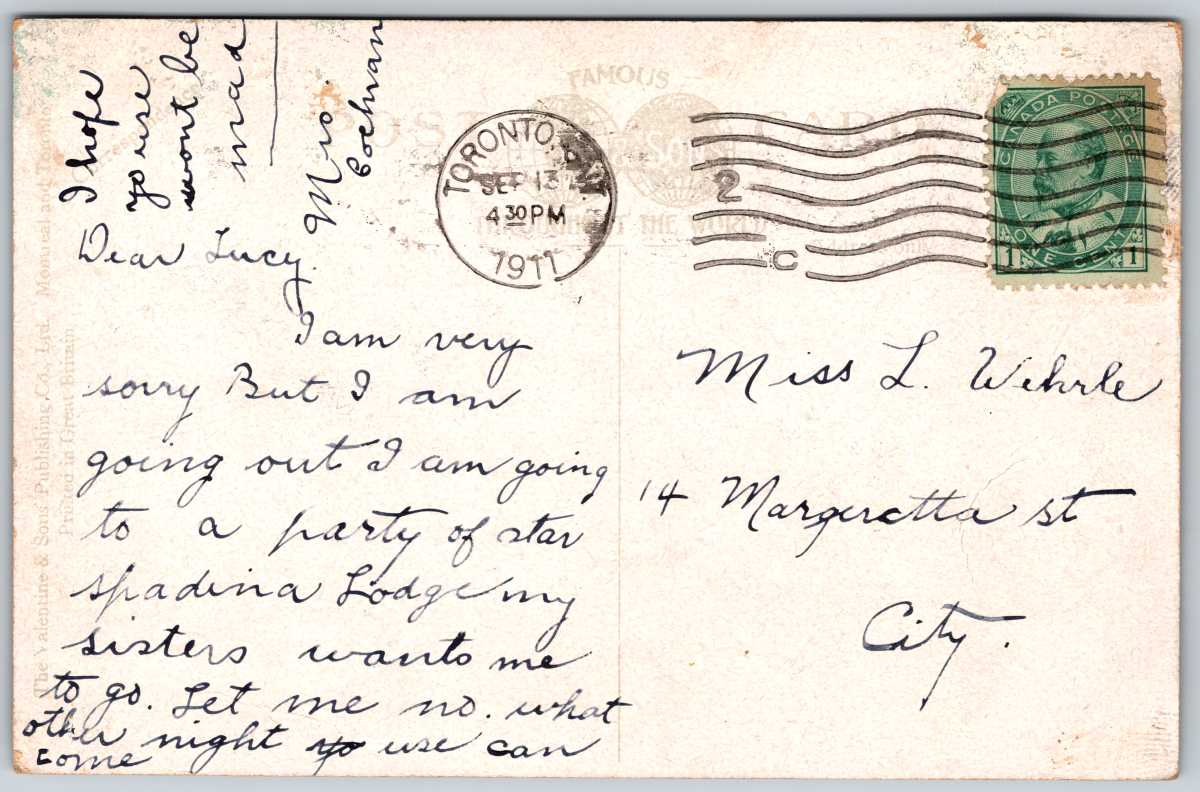 I hope
yo use
wont be
mad
Mrs.
Cochran
Dear Lucy.
I am very
sorry But I am
going out I am going
to a party of star
spadina Lodge my
sisters wants me
to go. Let me no. what
other night yo use can
come
FAMOUS
POST CARD
THROUGHOUT THE WORLD
TORONTO, ONT.
SEP 13
4 30 PM
1911
2
C
CANADA POSTAGE
ONE CENT
1 1
Miss L. Wehrle
14 Margeretta st
City.
The Valentine & Sons Publishing Co., Ltd. Montreal and Toronto
Printed in Great Britain